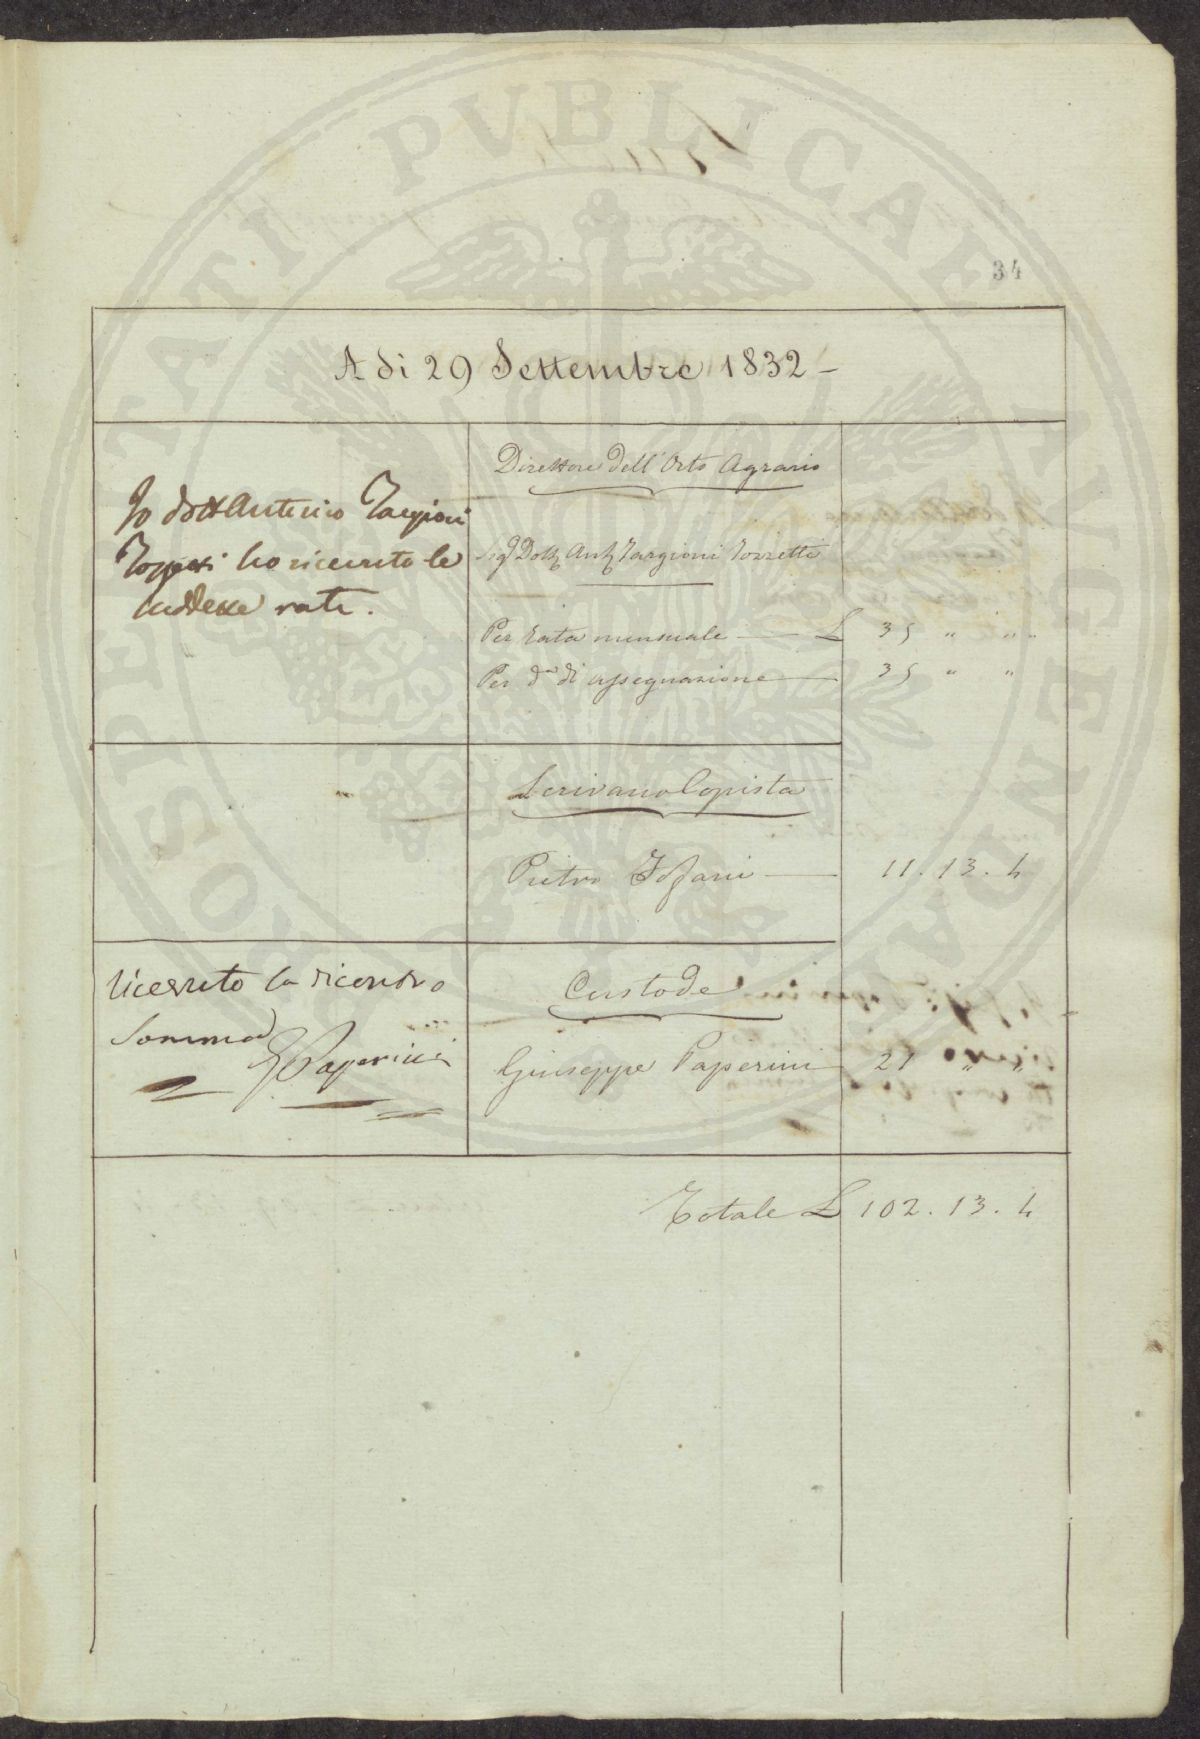 PROSPERITATI PVBLICAE AVGENDAE
34
A di 29 Settembre 1832 –
Direttore dell' Orto Agrario
Io dott Antonio Targioni
Tozzetti ho ricevuto le
suddette rate.
Sig Dott Ant Targioni Tozzetti
Per rata mensuale — £ 35 " "
Per d.ª di assegnazione — 35 " "
Scrivano Copista
Pietro — 11. 13. 4
Ricevuto la
Somma
G Paperini
Custode
Giuseppe Paperini 21 " "
Totale £ 102. 13. 4